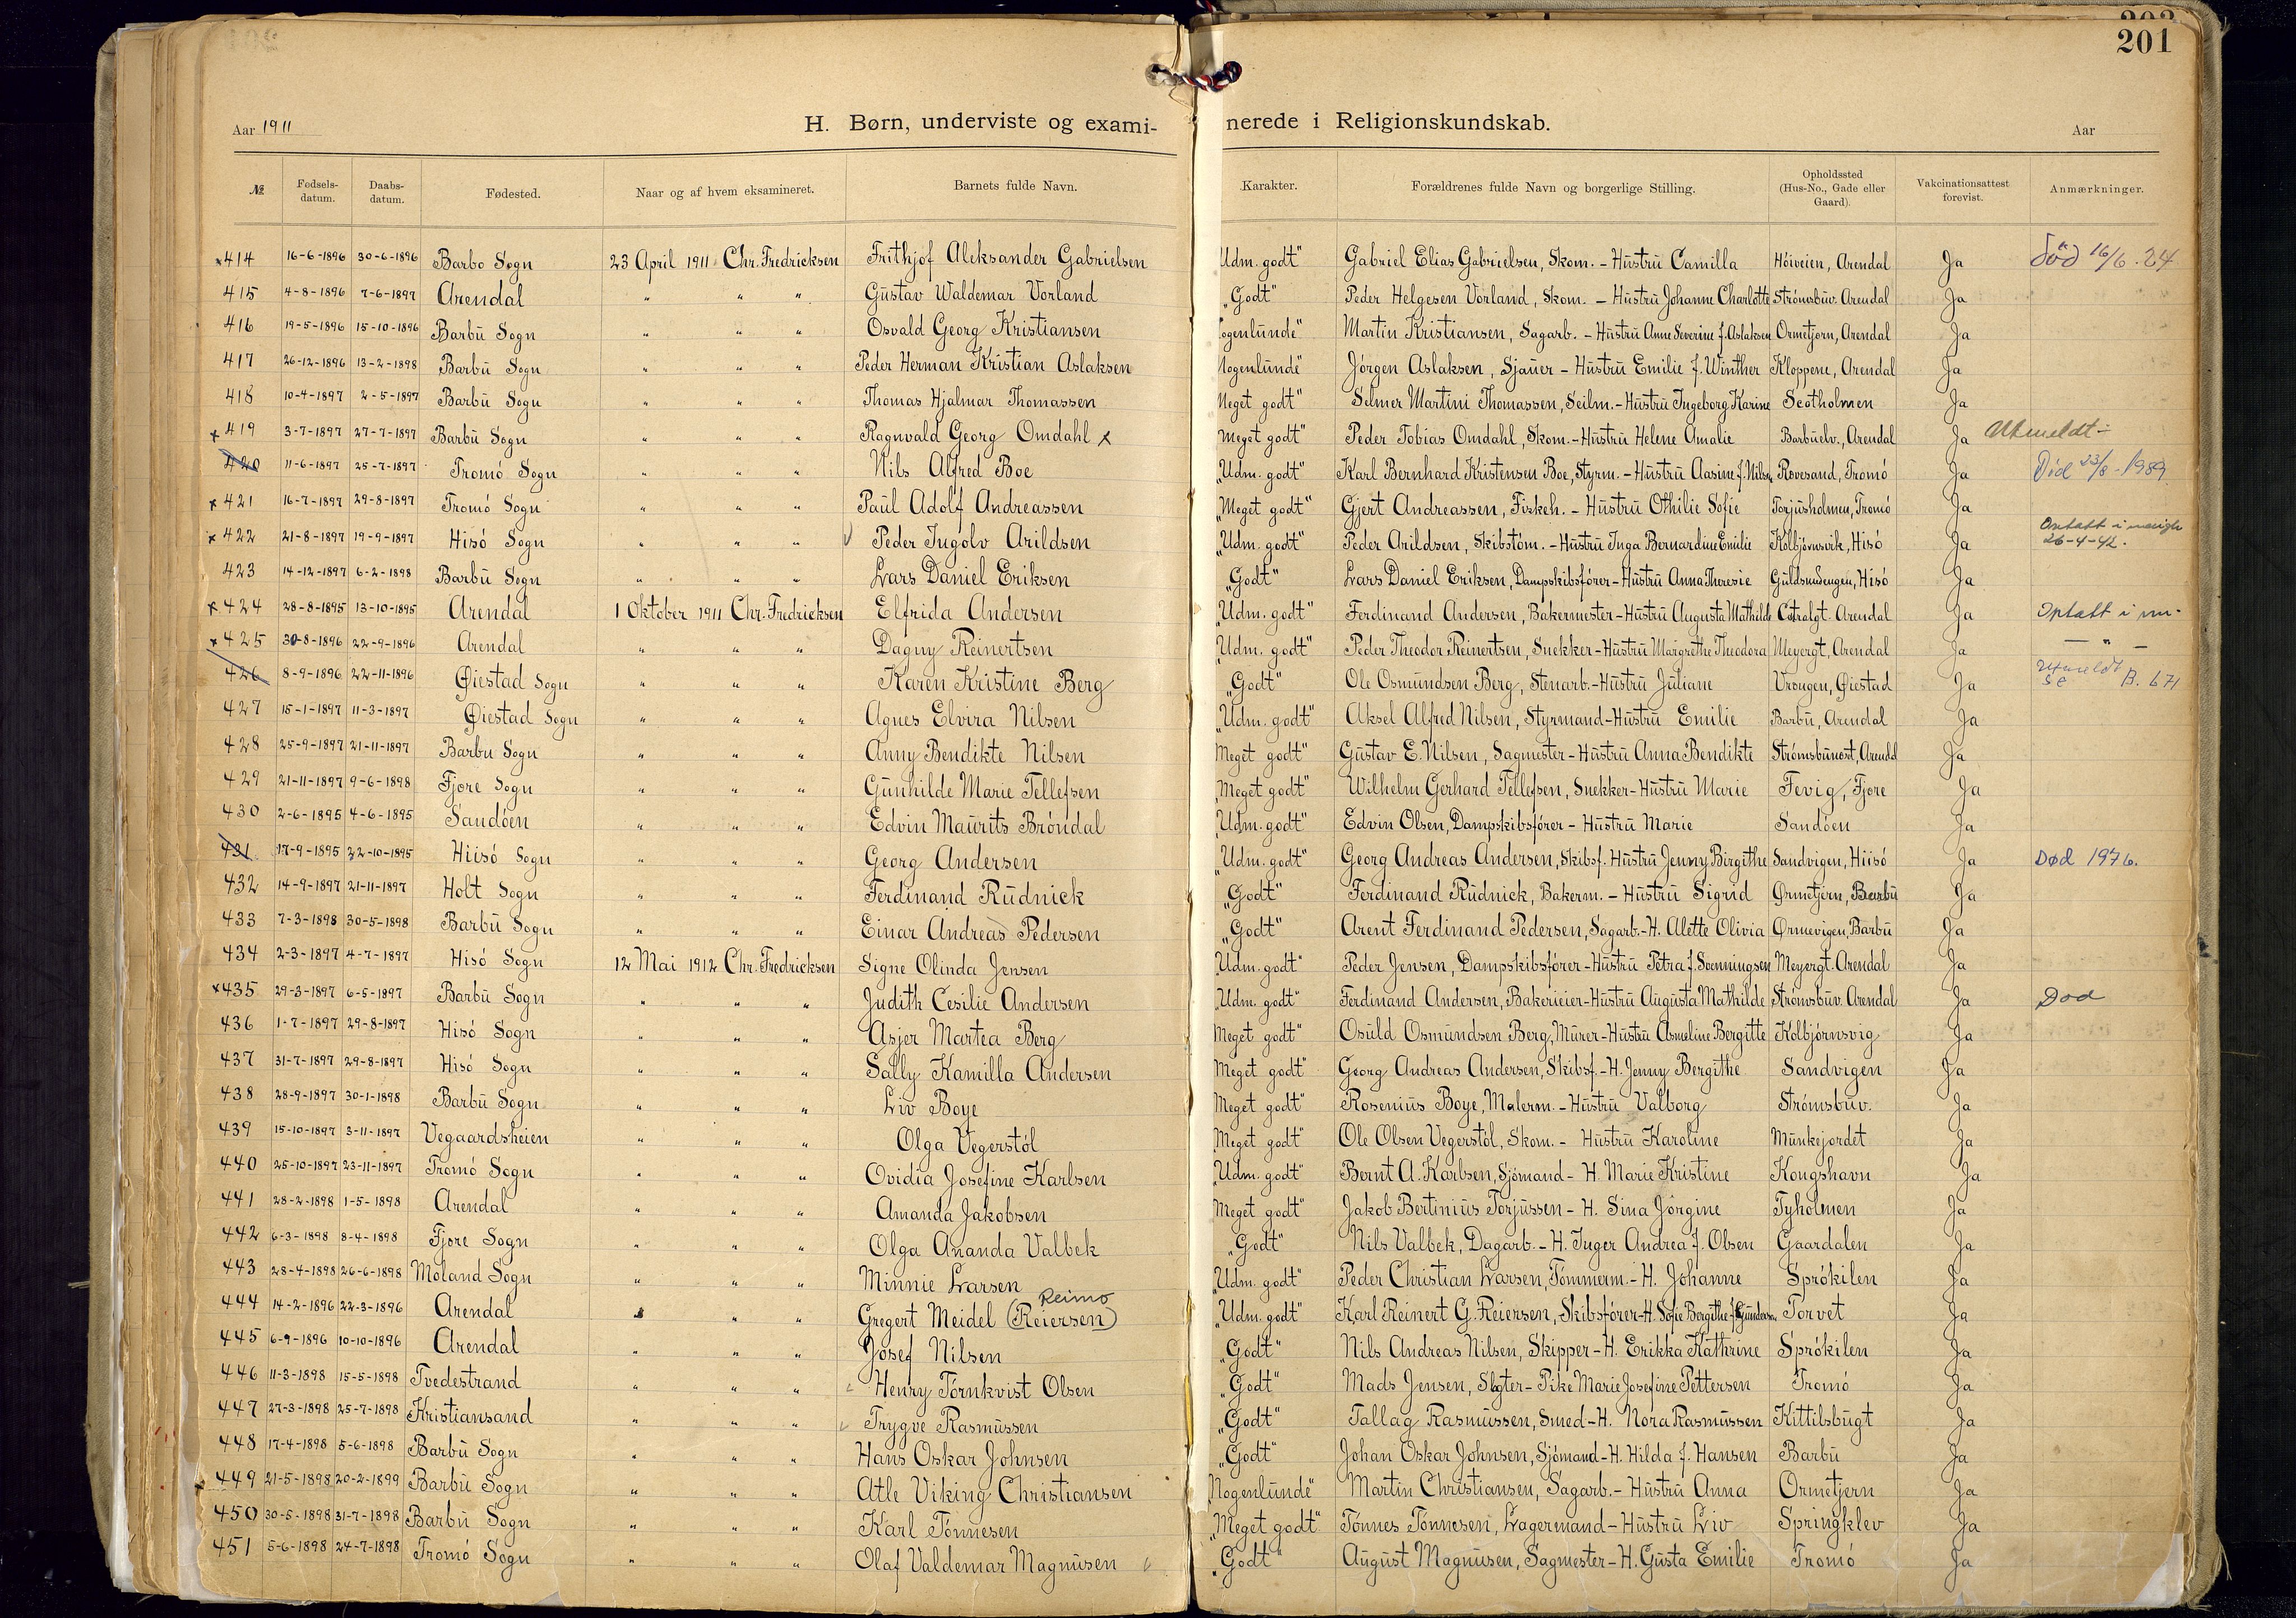 202
201
Aar 1911 H. Børn, underviste og exami- nerede i Religionskundskab. Aar
№ Fødsels-datum. Daabs-datum. Fødested. Naar og af hvem eksamineret. Barnets fulde Navn. Karakter. Forældrenes fulde Navn og borgerlige Stilling. Opholdssted (Hus-No., Gade eller Gaard). Vakcinationsattest forevist. Anmærkninger.
×414 16-6-1896 30-6-1896 Barbo Sogn 23 April 1911 Chr. Fredricksen Frithjof Aleksander Gabrielsen Udm. godt" Gabriel Elias Gabrielsen, Skom. - Hustrü Camilla Höiveien, Arendal Ja Död 16/6.24
415 4-8-1896 7-6-1897 Arendal " " " Güstav Waldemar Vorland „Godt" Peder Helgesen Vorland, Skom. - Hüstrü Johanne Charlotte Strömsbüv. Arendal Ja
416 19-5-1896 15-10-1896 Barbü Sogn " " " Osvald Georg Kristiansen ogenlünde" Martin Kristiansen, Sagarb. - Hüstrü Anne Severine f. Aslaksen Ormetjern, Arendal Ja
417 26-12-1896 13-2-1898 Barbü Sogn " " " Peder Herman Kristian Aslaksen Nogenlünde" Jörgen Aslaksen, Sjauer - Hüstrü Emilie f. Winther Kloppene, Arendal Ja
418 10-4-1897 2-5-1897 Barbü Sogn " " " Thomas Hjalmar Thomassen Meget godt" Selmer Martini Thomassen, Seilm. - Hüstrü Ingeborg Karine Scotholmen Ja
×419 3-7-1897 27-7-1897 Barbü Sogn " " " Ragnvald Georg Omdahl × Meget godt" Peder Tobias Omdahl, Skom. - Hüstrü Helene Amalie Barbüelv., Arendal Ja Utmeldt -
420 11-6-1897 25-7-1897 Tromö Sogn " " " Nils Alfred Boe „Udm. godt" Karl Bernhard Kristensen Boe, Styrm. - Hüstrü Aasine f. Nilsen Rovesand, Tromö Ja Död 23/8-1989
×421 16-7-1897 29-8-1897 Tromö Sogn " " " Paul Adolf Andreassen „Meget godt" Gjert Andreassen, Fiskeh. - Hüstrü Othilie Sofie Torjüsholmen, Tromö Ja
×422 21-8-1897 19-9-1897 Hisö Sogn " " " Peder Ingolv Arildsen „Udm. godt" Peder Arildsen, Skibstöm. - Hüstrü Inga Bernardine Emilie Kolbjörnsvik, Hisö Ja 26-4-42.
423 14-12-1897 6-2-1898 Barbü Sogn " " " Lars Daniel Eriksen „Godt" Lars Daniel Eriksen, Dampskibsförer - Hüstrü Anna Theresie Güldsmedengen, Hisö Ja
×424 28-8-1895 13-10-1895 Arendal 1 Oktober 1911 Chr. Fredricksen Elfrida Andersen „Udm. godt" Ferdinand Andersen, Bakermester - Hüstrü Augusta Mathilde Arendal Ja Optatt i
×425 30-8-1896 22-9-1896 Arendal " " " Dagny Reinertsen „Udm. godt" Peder Theodor Reinertsen, Snekker - Hüstrü Margrethe Theodora Meyergt, Arendal Ja - " -
426 8-9-1896 22-11-1896 Øiestad Sogn " " " Karen Kristine Berg „Godt" Ole Osmündsen Berg, Stenarb. - Hüstrü Jüliane Vrengen, Øiestad Ja Utmeldt se B. 671
427 15-1-1897 11-3-1897 Øiestad Sogn " " " Agnes Elvira Nilsen „Udm. godt" Aksel Alfred Nilsen, Styrmand - Hüstrü Emilie Barbü, Arendal Ja
428 25-9-1897 21-11-1897 Barbu Sogn " " " Anny Bendikte Nilsen Meget godt" Güstav E. Nilsen, Sagmester - Hüstrü Anna Bendikte Strömsbüneset, Arendal Ja
429 21-11-1897 9-6-1898 Fjore Sogn " " " Günhilde Marie Tellefsen „Meget godt" Wilhelm Gerhard Tellefsen, Snekker - Hüstrü Marie Fevig, Fjore Ja
430 2-6-1895 4-6-1895 Sandöen " " " Edvin Maurits Bröndal „Udm. godt" Edvin Olsen, Dampskibsförer - Hüstrü Marie Sandöen Ja
431 17-9-1895 22-10-1895 Hiisö Sogn " " " Georg Andersen „Udm. godt" Georg Andreas Andersen, Skibsf. Hüstrü Jenny Birgithe Sandvigen, Hiisö Ja Død 1976.
432 14-9-1897 21-11-1897 Holt Sogn " " " Ferdinand Rüdnick „Godt" Ferdinand Rüdnick, Bakerm. - Hüstrü Sigrid Ørmetjern, Barbü Ja
433 7-3-1898 30-5-1898 Barbü Sogn " " " Einar Andreas Pedersen „Godt" Arent Ferdinand Pedersen, Sagarb. - H. Alette Olivia Ørmevigen, Barbü Ja
434 2-3-1897 4-7-1897 Hisö Sogn 12 Mai 1912 Chr. Fredricksen Signe Olinda Jensen „Udm. godt" Peder Jensen, Dampskibsförer - Hüstrü Petra f. Svenningsen Meyergt. Arendal Ja
×435 29-3-1897 6-5-1897 Barbü Sogn " " " Judith Cesilie Andersen „Udm. godt" Ferdinand Andersen, Bakerieier - Hüstrü Augusta Mathilde Strömsbüv. Arendal Ja Död
436 1-7-1897 29-8-1897 Hisö Sogn " " " Asjer Martea Berg Meget godt" Osüld Osmündsen Berg, Mürer - Hüstrü Asmeline Bergitte Kolbjörnsvig Ja
437 31-7-1897 29-8-1897 Hisö Sogn " " " Sally Kamilla Andersen Meget godt" Georg Andreas Andersen, Skibsf. - H. Jenny Bergithe Sandvigen Ja
438 28-9-1897 30-1-1898 Barbü Sogn " " " Liv Boye Meget godt" Rosenius Boye, Malerm. - Hüstrü Valborg Strömsbüv. Ja
439 15-10-1897 3-11-1897 Vegaardsheien " " " Olga Vegerstöl Meget godt" Ole Olsen Vegerstöl, Skom. - Hüstrü Karoline Münkejordet Ja
440 25-10-1897 23-11-1897 Tromö Sogn " " " Ovidia Josefine Karlsen „Udm. godt" Bernt A. Karlsen, Sjömand - H. Marie Kristine Kongshavn Ja
441 28-2-1898 1-5-1898 Arendal " " " Amanda Jakobsen Meget godt" Jakob Bertinius Torjüssen - H. Sina Jörgine Tyholmen Ja
442 6-3-1898 8-4-1898 Fjore Sogn " " " Olga Ananda Valbek „Godt" Nils Valbek, Dagarb. - H. Inger Andrea f. Olsen Gaardalen Ja
443 28-4-1898 26-6-1898 Moland Sogn " " " Minnie Larsen „Udm. godt" Peder Christian Larsen, Tömmerm. - H. Johanne Sprökilen Ja
Reimo
444 14-2-1896 22-3-1896 Arendal " " " Gregert Meidel (Reiersen) „Udm. godt" Karl Reinert G. Reiersen, Skibsförer - H. Sofie Bergithe f. Gundersen Torvet Ja
445 6-9-1896 10-10-1896 Arendal " " " Josef Nilsen „Godt" Nils Andreas Nilsen, Skipper - H. Erikka Kathrine Sprökilen Ja
446 11-3-1898 15-5-1898 Tvedestrand " " " Henry Törnkvist Olsen „Godt" Mads Jensen, Slgter - Pike Marie Josefine Pettersen Tromö Ja
447 27-3-1898 25-7-1898 Kristiansand " " " Trygve Rasmüssen „Godt" Tallag Rasmüssen, Smed - H. Nora Rasmüssen Kittilsbügt Ja
448 17-4-1898 5-6-1898 Barbü Sogn " " " Hans Oskar Johnsen „Godt" Johan Oskar Johnsen, Sjömand - H. Hilda f. Hansen Barbü Ja
×449 21-5-1898 20-2-1899 Barbü Sogn " " " Atle Viking Christiansen Nogenlünde" Martin Christiansen, Sagarb. - Hüstrü Anna Ormetjern Ja
450 30-5-1898 31-7-1898 Barbü Sogn " " " Karl Tönnesen „Meget godt" Tönnes Tönnesen, Lagermand - Hüstrü Liv Springklev Ja
451 5-6-1898 24-7-1898 Tromö Sogn " " " Olaf Valdemar Magnüsen „Godt" August Magnüsen, Sagmester - H. Güsta Emilie Tromö Ja